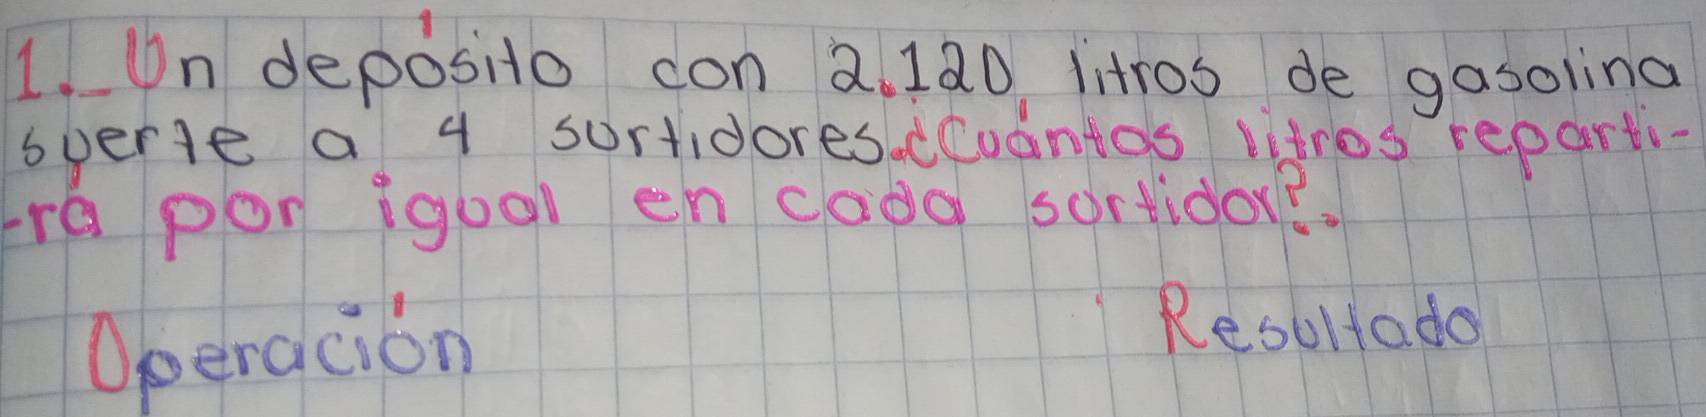 1._Un depósito con 2.120 litros de gasolina
suerte a 4 surtidores.¿Cuántos litros reparti-
-rá por igual en cada surtidor?.
Operación Resultado